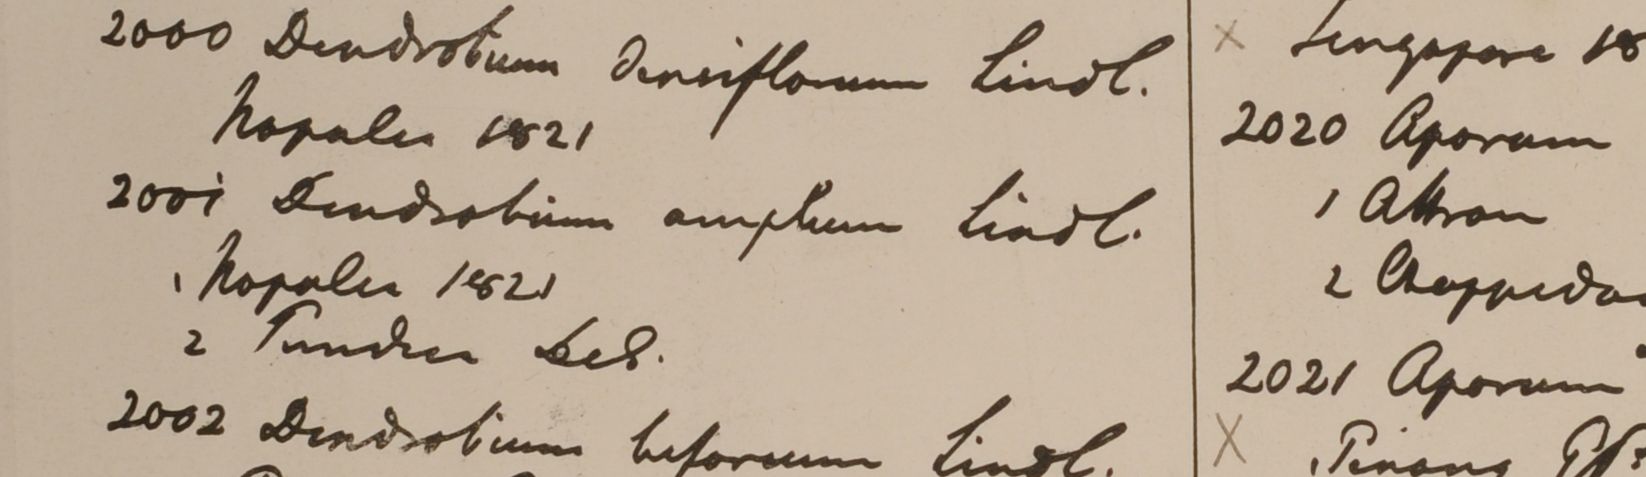 2000 Dendrobium densiflorum Lindl.
Napalia 1821
2001 Dendrobium amplum Lindl.
1 Napalia 1821
2 Tundra
2002 Dendrobium Lindl.
Singapore 18
2020 Aporum
1 Attran
2 Chappedo
2021 Aporum
1 Pinang